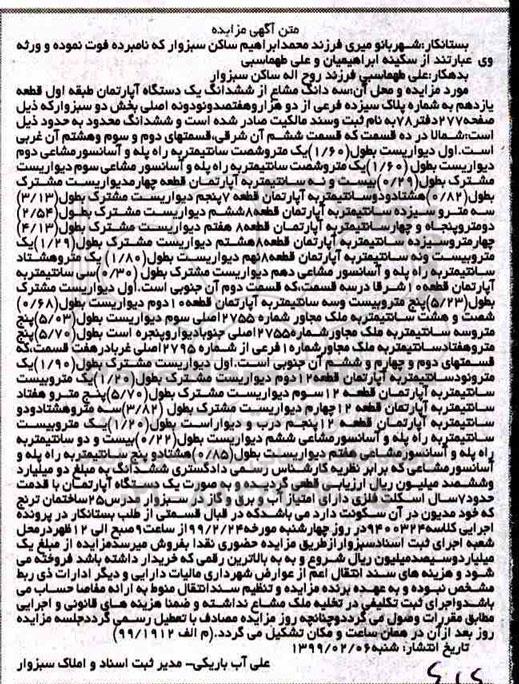 متن آگهی مزایده
بستانکار:شهربانو میری فرزند محمدابراهیم ساکن سبزوار که نامبرده فوت نموده و ورثه
وی عبارتند از سکینه ابراهیمیان و علی طهماسبی
بدهکار:علی طهماسبی فرزند روح اله ساکن سبزوار
مورد مزایده و محل آن:سه دانگ مشاع از ششدانگ یک دستگاه آپارتمان طبقه اول قطعه
یازدهم به شماره پلاک سیزده فرعی از دو هزاروهفتصدونودونه اصلی بخش دو سبزوارکه ذیل
صفحه۲۷۷دفتر۷۸به نام ثبت وسند مالکیت صادر شده است و ششدانگ محدود به حدود ذیل
است:شمالا در ده قسمت که قسمت ششم آن شرقی،قسمتهای دوم و سوم وهشتم آن غربی
است.اول دیواریست بطول(۱/۶۰)یک متروشصت سانتیمتربه راه پله و آسانسورمشاعی دوم
دیواریست بطول (۱/۶۰)یک متروشصت سانتیمتربه راه پله و آسانسور مشاعی سوم دیواریست
مشترک بطول(۰/۲۹)بیست و نه سانتیمتربه آپارتمان قطعه چهارمدیواریست مشترک
بطول(۰/۸۲)هشتادودوسانتیمتربه آپارتمان قطعه ۷پنجم دیواریست مشترک بطول(۳/۱۳)
سه مترو سیزده سانتیمتربه آپارتمان قطعه۸ششم دیواریست مشترک بطول(۲/۵۴)
دومتروپنجاه و چهارسانتیمتربه آپارتمان قطعه۸ هفتم دیواریست مشترک بطول(۴/۱۳)
چهارمتروسیزده سانتیمتربه آپارتمان قطعه۸هشتم دیواریست مشترک بطول(۱/۲۹)یک
متروبیست ونه سانتیمتربه آپارتمان قطعه۸نهم دیواریست بطول (۱/۸۰) یک متروهشتاد
سانتیمتربه راه پله و آسانسور مشاعی دهم دیواریست مشترک بطول (۰/۳۰)سی سانتیمتربه
آپارتمان قطعه۱۰شرقا درسه قسمت،که قسمت دوم آن جنوبی است.اول دیواریست مشترک
بطول(۵/۲۳)پنج متروبیست وسه سانتیمتربه آپارتمان قطعه۱۰دوم دیواریست بطول(۰/۶۸)
شصت و هشت سانتیمتربه ملک مجاور شماره ۲۷۵۵اصلی سوم دیواریست بطول(۵/۰۳)پنج
متروسه سانتیمتربه ملک مجاورشماره۲۷۵۵اصلی جنوبادیواروپنجره است بطول(۵/۷۰)پنج
متروهفتادسانتیمتربه ملک مجاورشماره۱فرعی از شماره ۲۷۹۵اصلی غربادرهفت قسمت،که
قسمتهای دوم و چهارم و ششم آن جنوبی است.اول دیواریست مشترک بطول(۱/۹۰)یک
مترونودسانتیمتربه آپارتمان قطعه۱۲دوم دیواریست مشترک بطول(۱/۲۰)یک متروبیست
سانتیمتربه آپارتمان قطعه ۱۲سوم دیواریست مشترک بطول(۵/۷۰)پنج مترو هفتاد
سانتیمتربه آپارتمان قطعه ۱۲چهارم دیواریست مشترک بطول (۳/۸۲)سه متروهشتادودو
سانتیمتربه آپارتمان قطعه ۱۲پنجم درب و دیواراست بطول(۱/۲۰)یک متروبیست
سانتیمتربه راه پله و آسانسورمشاعی ششم دیواریست بطول(۰/۲۲)بیست و دو سانتیمتربه
راه پله و آسانسورمشاعی هفتم دیواریست بطول(۰/۸۵)هشتادو پنج سانتیمتربه راه پله و
آسانسورمشاعی که برابر نظریه کارشناس رسمی دادگستری ششدانگ به مبلغ دو میلیارد
وششصد میلیون ریال ارزیابی قطعی گردیده و به صورت یک دستگاه آپارتمان با قدمت
حدود۷سال اسکلت فلزی دارای امتیاز آب برق و گاز در سبزوار مدرس۲۵ساختمان ترنج
که خود مدیون در آن سکونت دارد می باشدکه در قبال قسمتی از طلب بستانکار در پرونده
اجرایی کلاسه۹۴۰۰۳۲۴در روز چهارشنبه مورخه۹۹/۲/۲۴از ساعت۹صبح الی ۱۲ظهردرمحل
شعبه اجرای ثبت اسنادسبزوارازطریق مزایده حضوری نقدا بفروش میرسدمزایده از مبلغ یک
میلیاردوسیصدمیلیون ریال شروع و به به بالاترین رقمی که خریدار داشته باشد فروخته می
شود و هزینه های سند انتقال اعم از عوارض شهرداری مالیات دارایی و دیگر ادارات ذی ربط
مشخص نبوده و به عهده برنده مزایده و تنظیم سندانتقال منوط به ارائه مفاصا حساب می
باشدواجرای ثبت تکلیفی در تخلیه ملک مشاع نداشته و ضمنا هزینه های قانونی و اجرایی
مطابق مقررات وصول می گرددوچنانچه روز مزایده مصادف با تعطیل رسمی گرددجلسه مزایده
روز بعد ازآن در همان ساعت و مکان تشکیل می گردد.(م الف ۹۹/۱۹۱۲)
تاریخ انتشار: شنبه۱۳۹۹/۰۲/۰۶
علی آب باریکی- مدیر ثبت اسناد و املاک سبزوار